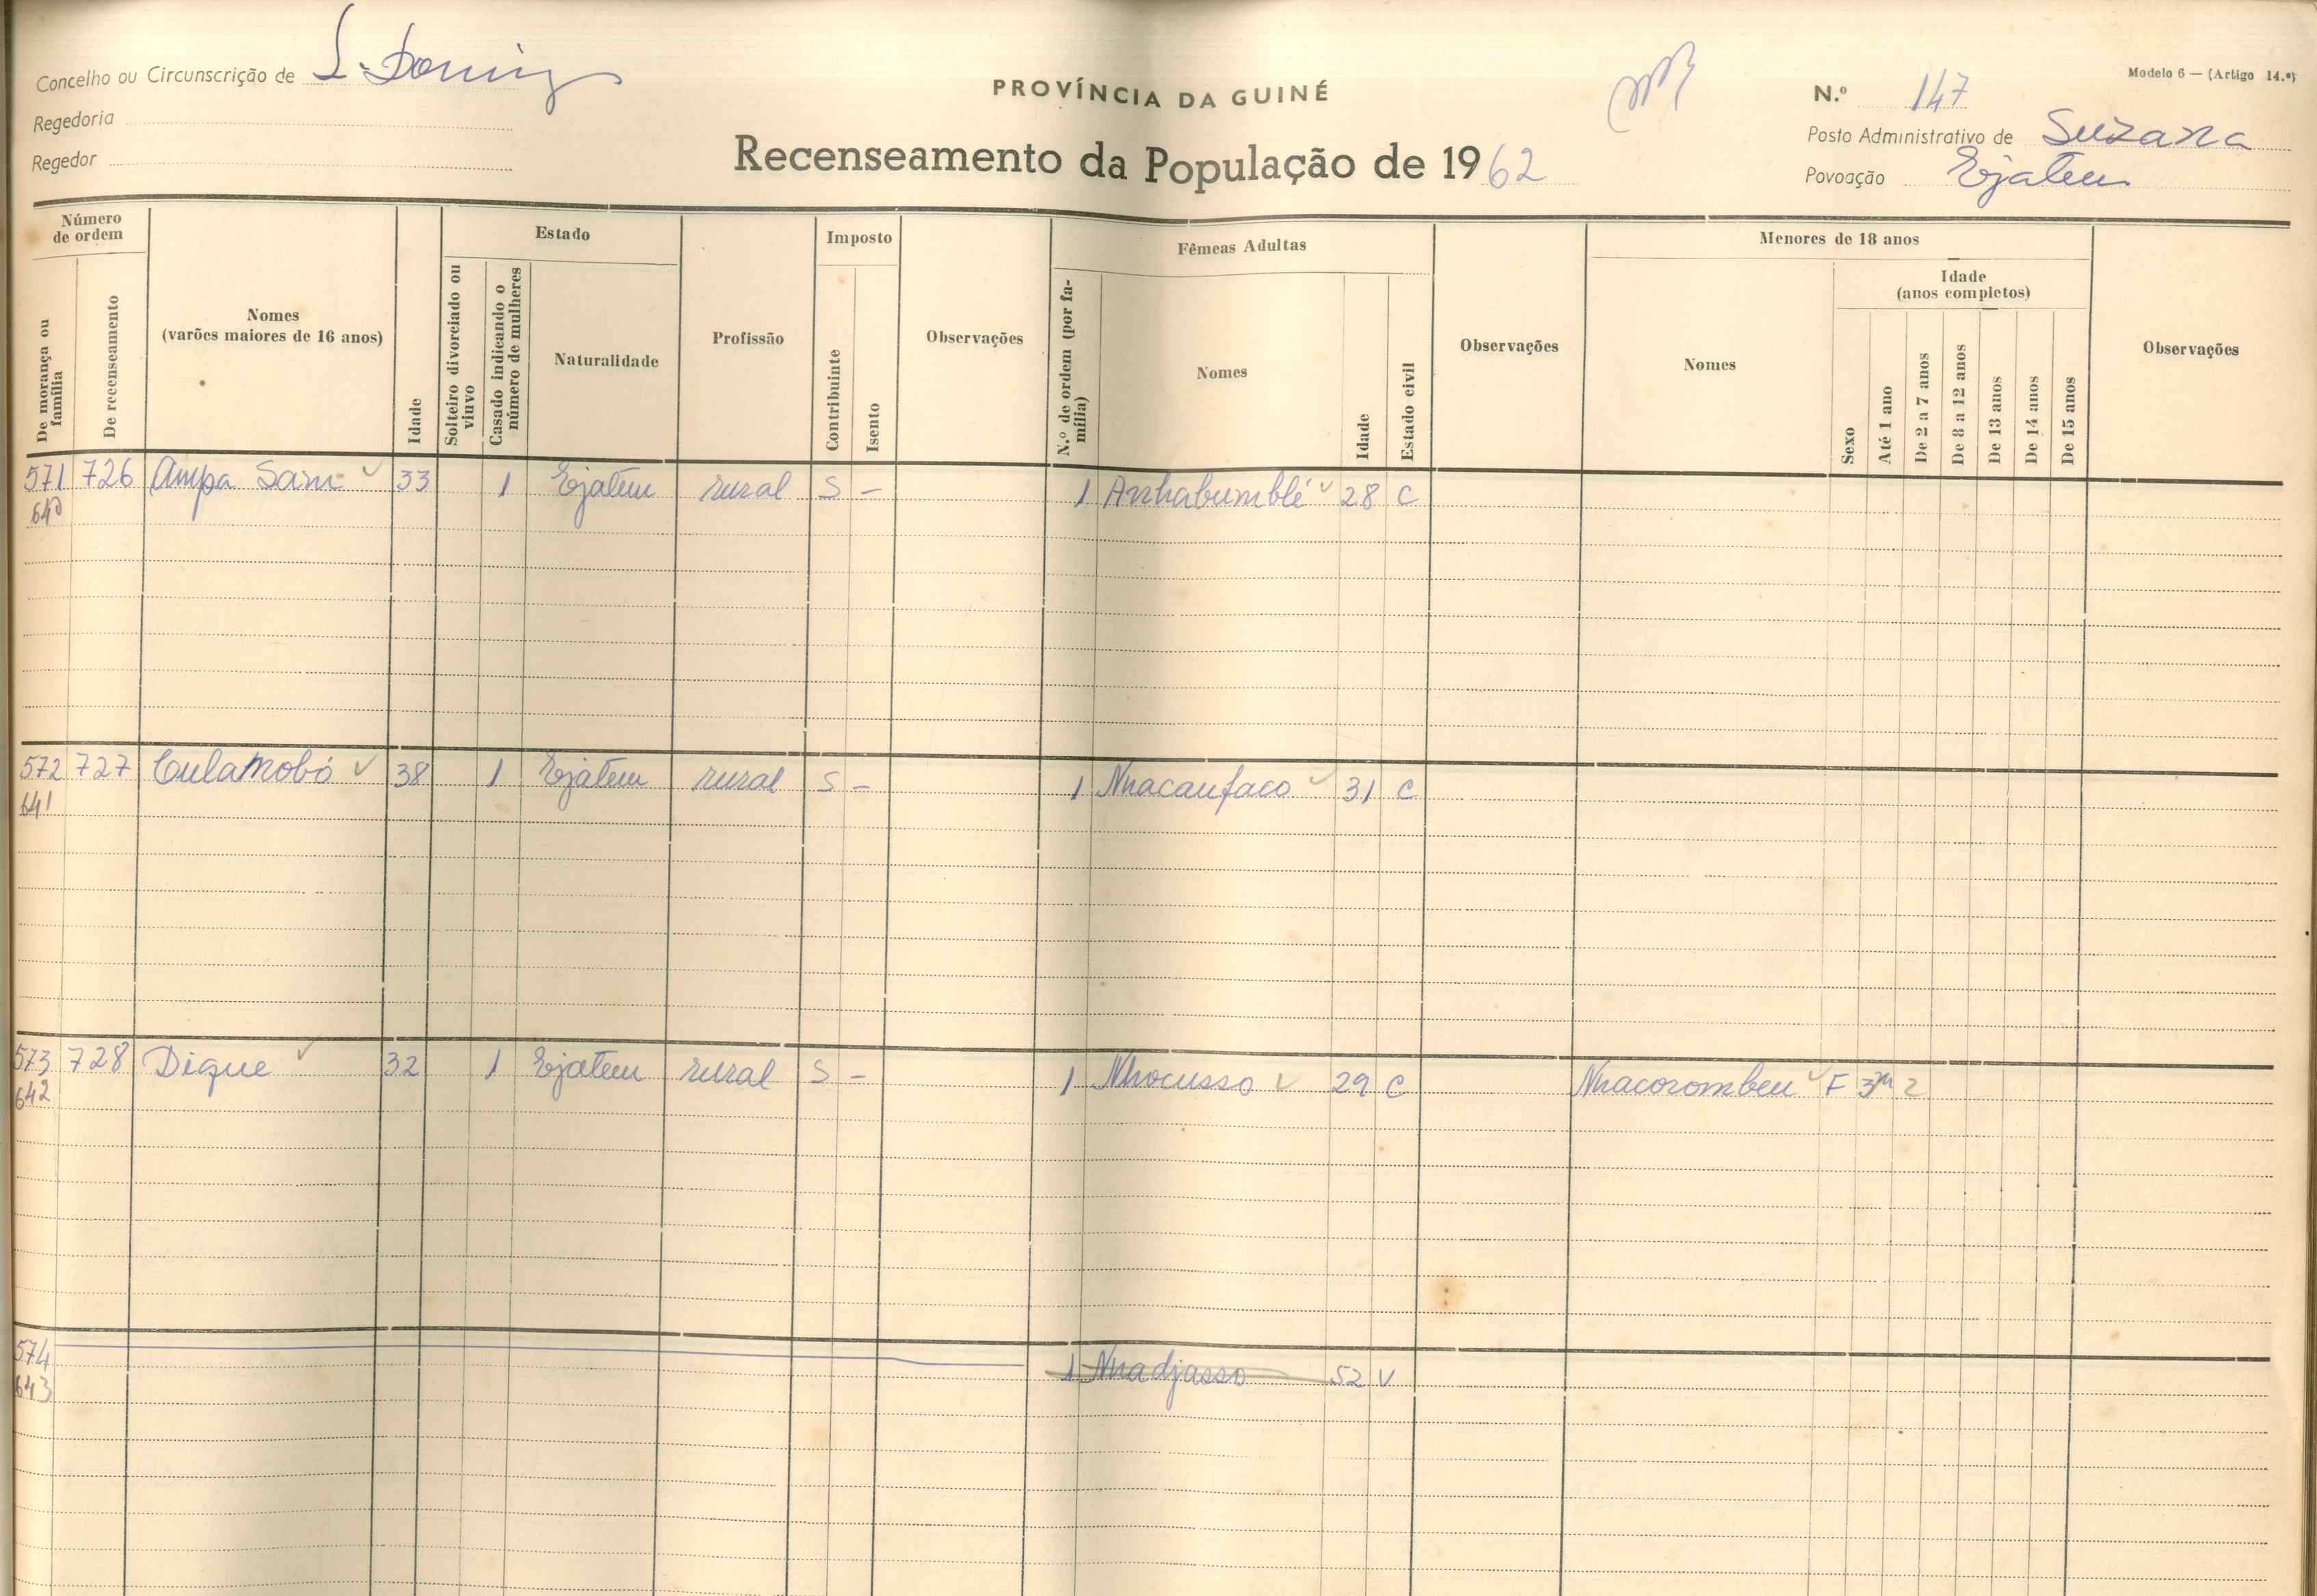 Concelho ou Circunscrição de S. Doming
PROVÍNCIA DA GUINÉ
N.º 147
Modelo 6 — (Artigo 14.º)
Regedoria
Posto Administrativo de Suzana
Regedor
Recenseamento da População de 1962
Povoação Ejatem
Número de ordem
De morança ou família
De recenseamento
Nomes
(varões maiores de 16 anos)
Idade
Estado
Solteiro divorciado ou viuvo
Casado indicando o número de mulheres
Naturalidade
Profissão
Imposto
Contribuinte
Isento
Observações
Fêmeas Adultas
N.º de ordem (por família)
Nomes
Idade
Estado civil
Observações
Menores de 18 anos
Nomes
Sexo
Idade
(anos completos)
Até 1 ano
De 2 a 7 anos
De 8 a 12 anos
De 13 anos
De 14 anos
De 15 anos
Observações
571 726 Ampa Sam 33 1 Ejatem rural S - 1 Anhabumblé 28 C
640
572 727 Culamobó 38 1 Ejatem rural S - 1 Nhacanfaco 31 C
641
573 728 Dique 32 1 Ejatem rural S - 1 Nhocusso 29 C Nhacorombeu F 3m 2
642
574 1 Nhadjasso 52 V
643